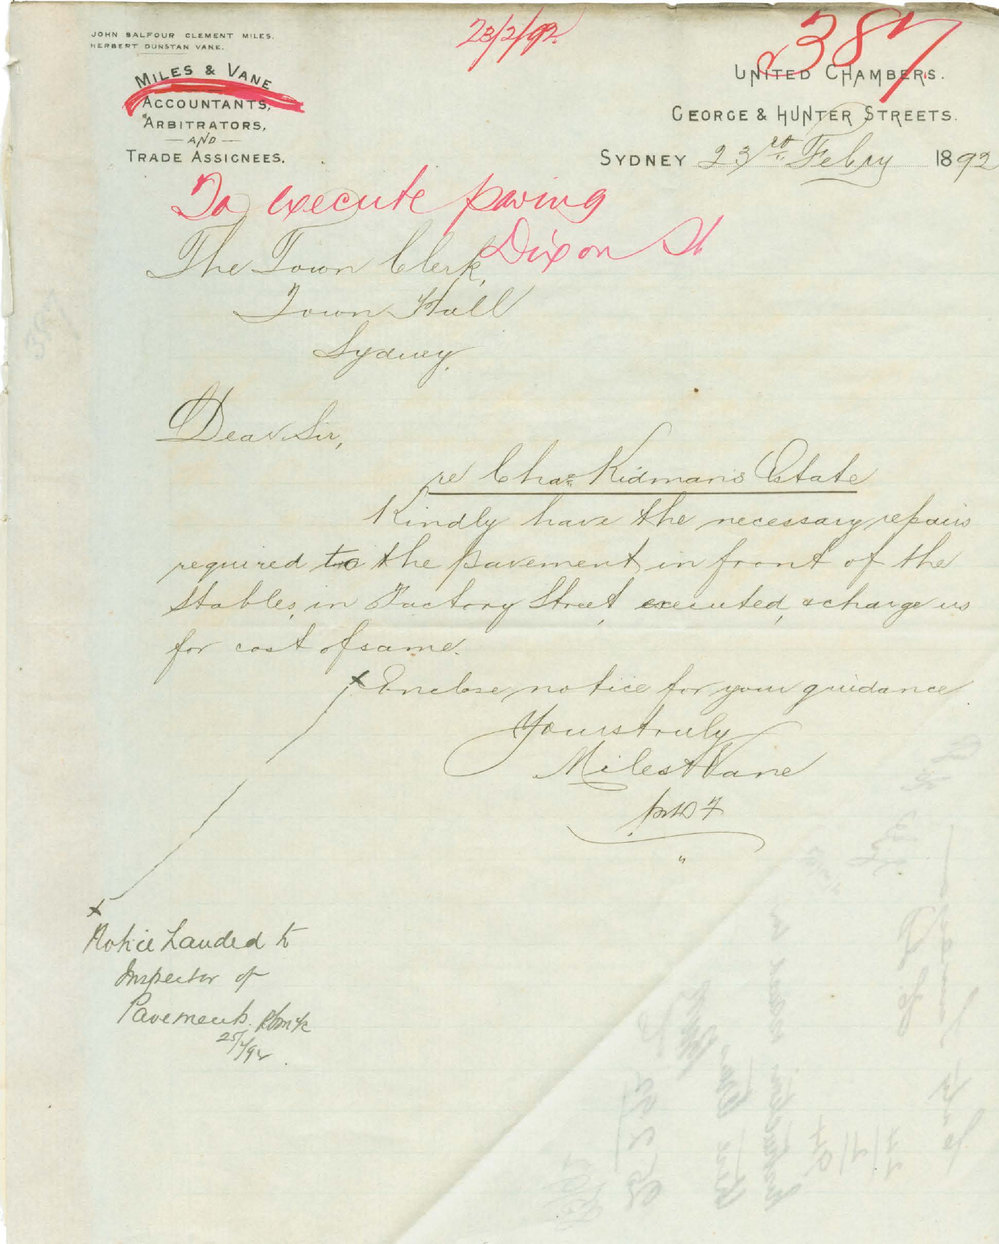 JOHN BALFOUR CLEMENT MILES.
HERBERT DUNSTAN VANE.
23/2/92
2387
MILES & VANE
ACCOUNTANTS,
ARBITRATORS,
AND
TRADE ASSIGNEES.
UNITED CHAMBERS.
GEORGE & HUNTER STREETS.
SYDNEY 23rd Febry 1892
To execute paving
Dixon St
The Town Clerk,
Town Hall
Sydney.
Dear Sir,
re Chas Kidman's Estate
Kindly have the necessary repairs
required to the pavement in front of the
stables, in Factory Street, executed, & charge us
for cost of same.
x Enclose notice for your guidance
Yours truly
Miles & Vane
x
Notice handed to
Inspector of
Pavements.